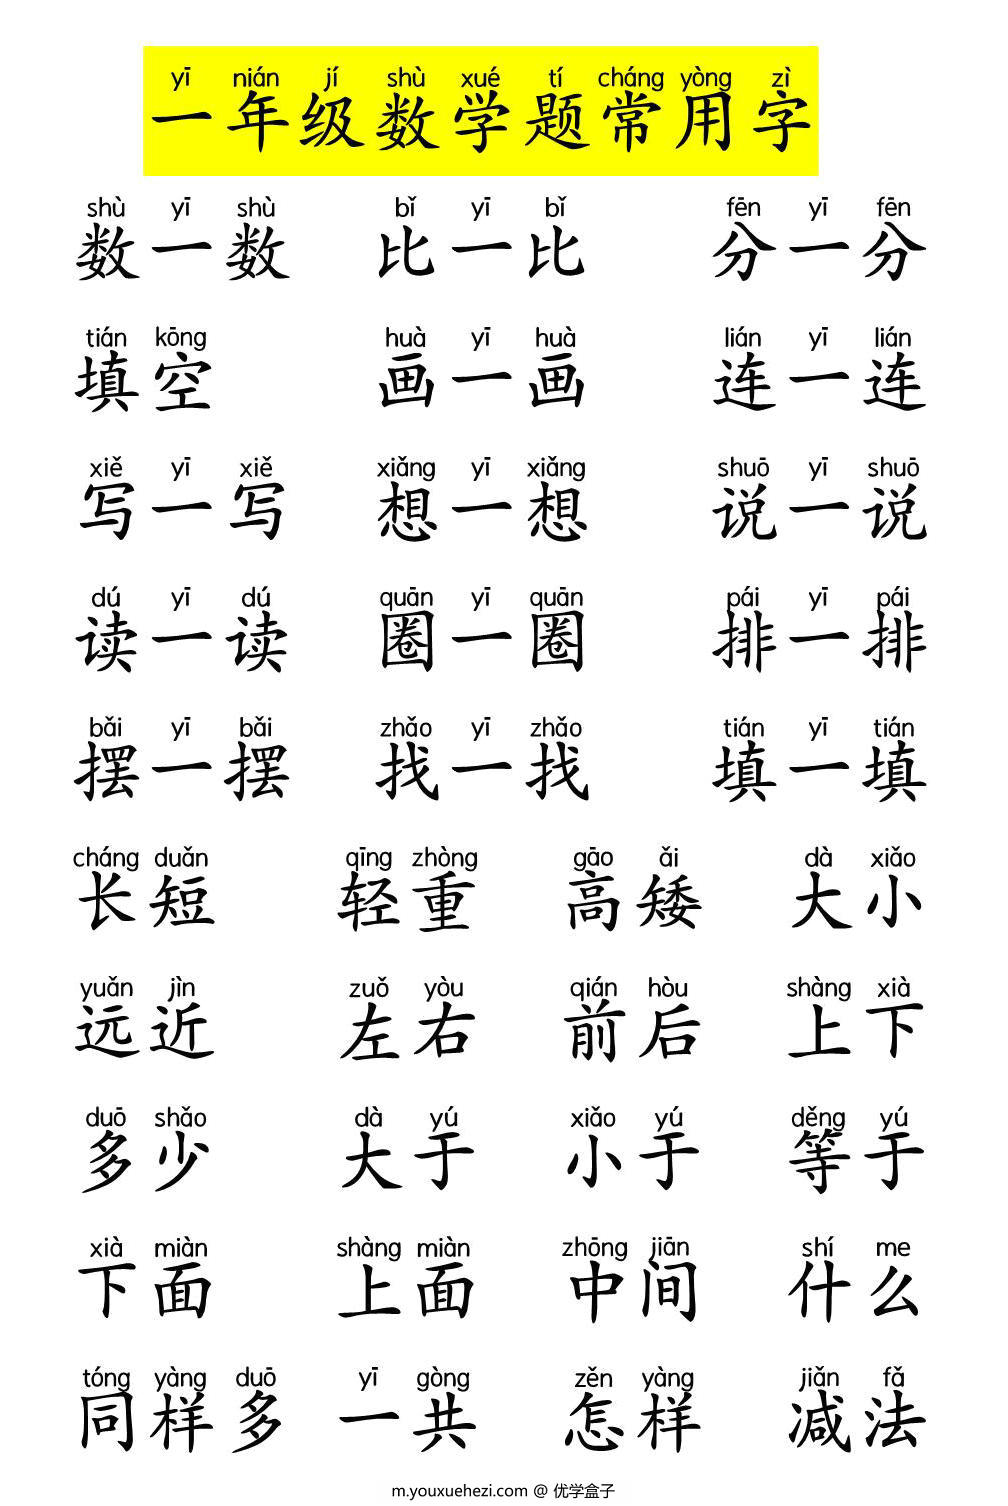 yī nián jí shù xué tí cháng yòng zì
一年级数学题常用字
shù yī shù bǐ yī bǐ fēn yī fēn
数一数 比一比 分一分
tián kōng huà yī huà lián yī lián
填空 画一画 连一连
xiě yī xiě xiǎng yī xiǎng shuō yī shuō
写一写 想一想 说一说
dú yī dú quān yī quān pái yī pái
读一读 圈一圈 排一排
bǎi yī bǎi zhǎo yī zhǎo tián yī tián
摆一摆 找一找 填一填
cháng duǎn qīng zhòng gāo ǎi dà xiǎo
长短 轻重 高矮 大小
yuǎn jìn zuǒ yòu qián hòu shàng xià
远近 左右 前后 上下
duō shǎo dà yú xiǎo yú děng yú
多少 大于 小于 等于
xià miàn shàng miàn zhōng jiān shí me
下面 上面 中间 什么
tóng yàng duō yī gòng zěn yàng jiǎn fǎ
同样多 一共 怎样 减法
m.youxuehezi.com @ 优学盒子